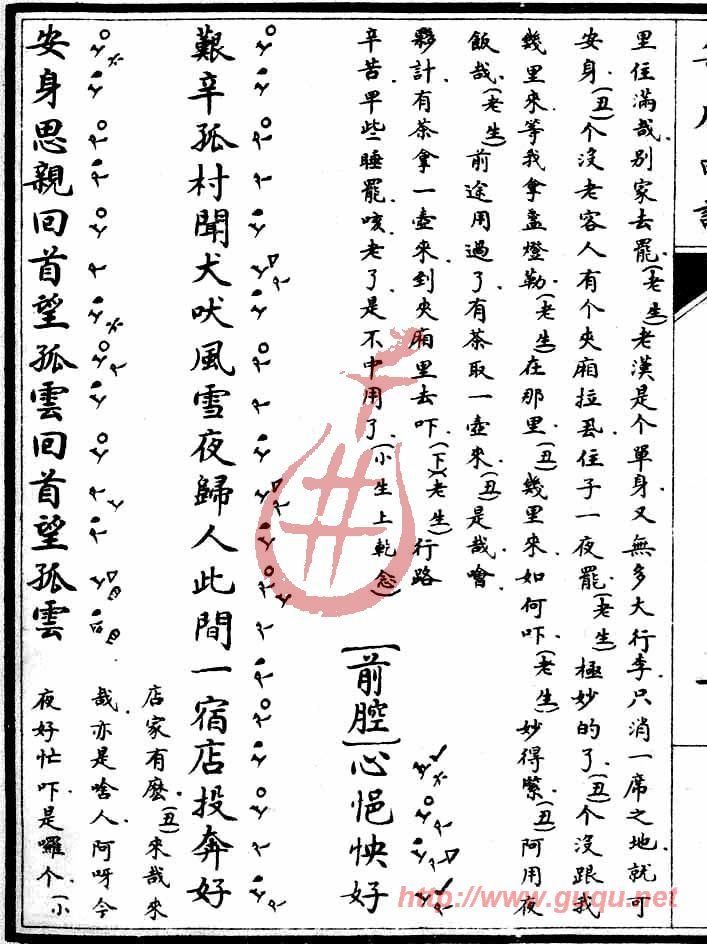 里住滿哉.別家去罷.(老生)老漢是个單身.又無多大行李.只消一席之地.就可
安身.(丑)个沒老客人有个夾廂拉厾.住子一夜罷.(老生)極妙的了.(丑)个沒跟我
幾里來.等我拿盞燈勒.(老生)在那里.(丑)幾里來.如何吓.(老生)妙得緊.(丑)阿用夜
飯哉.(老生)前途用過了.有茶取一壺來.(丑)是哉.噲
夥計.有茶拿一壺來.到夾廂里去吓.(下)(老生)行路
辛苦.早些睡罷.咳.老了.是不中用了.(小生上乾念)
[前腔]心悒怏好
艱辛孤村聞犬吠風雪夜歸人此間一宿店投奔好
店家有麽.(丑)來哉來
安身思親回首望孤雲回首望孤雲
哉.亦是啥人.阿呀.今
夜好忙吓.是囉个.(小
http://www.guqu.net